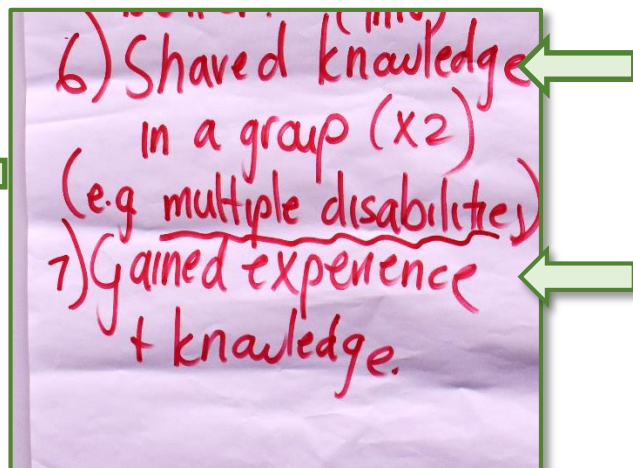 6) Shared knowledge
in a group (x2)
(e.g multiple disabilities)
7) Gained experience
+ knowledge.